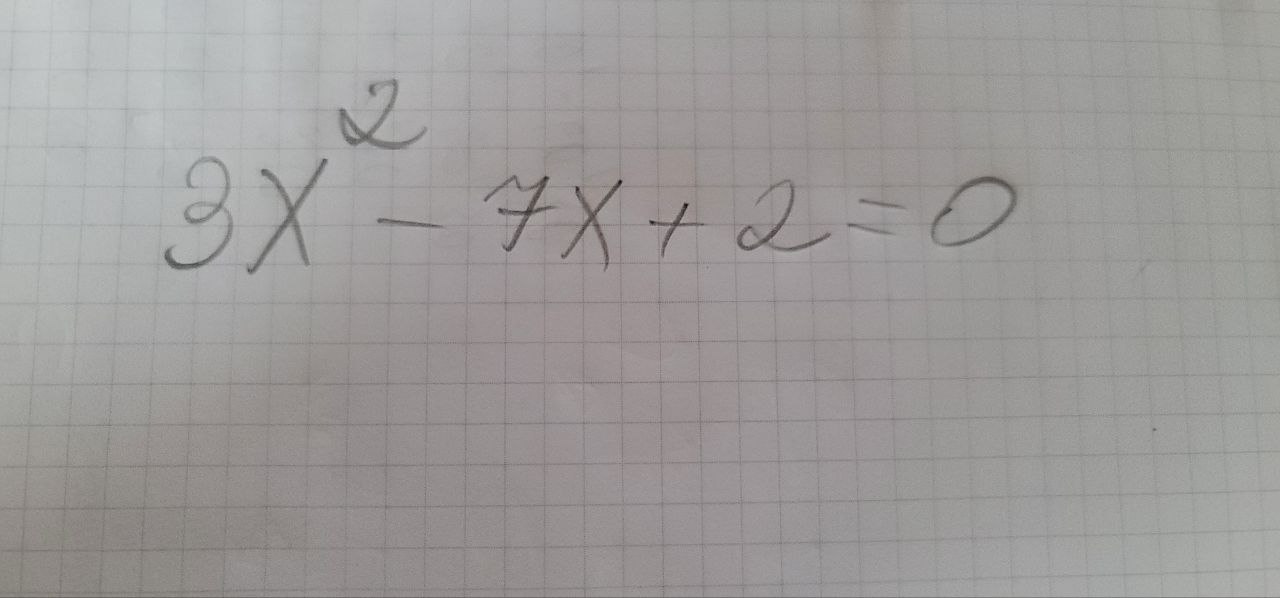 3x² - 7x + 2 = 0